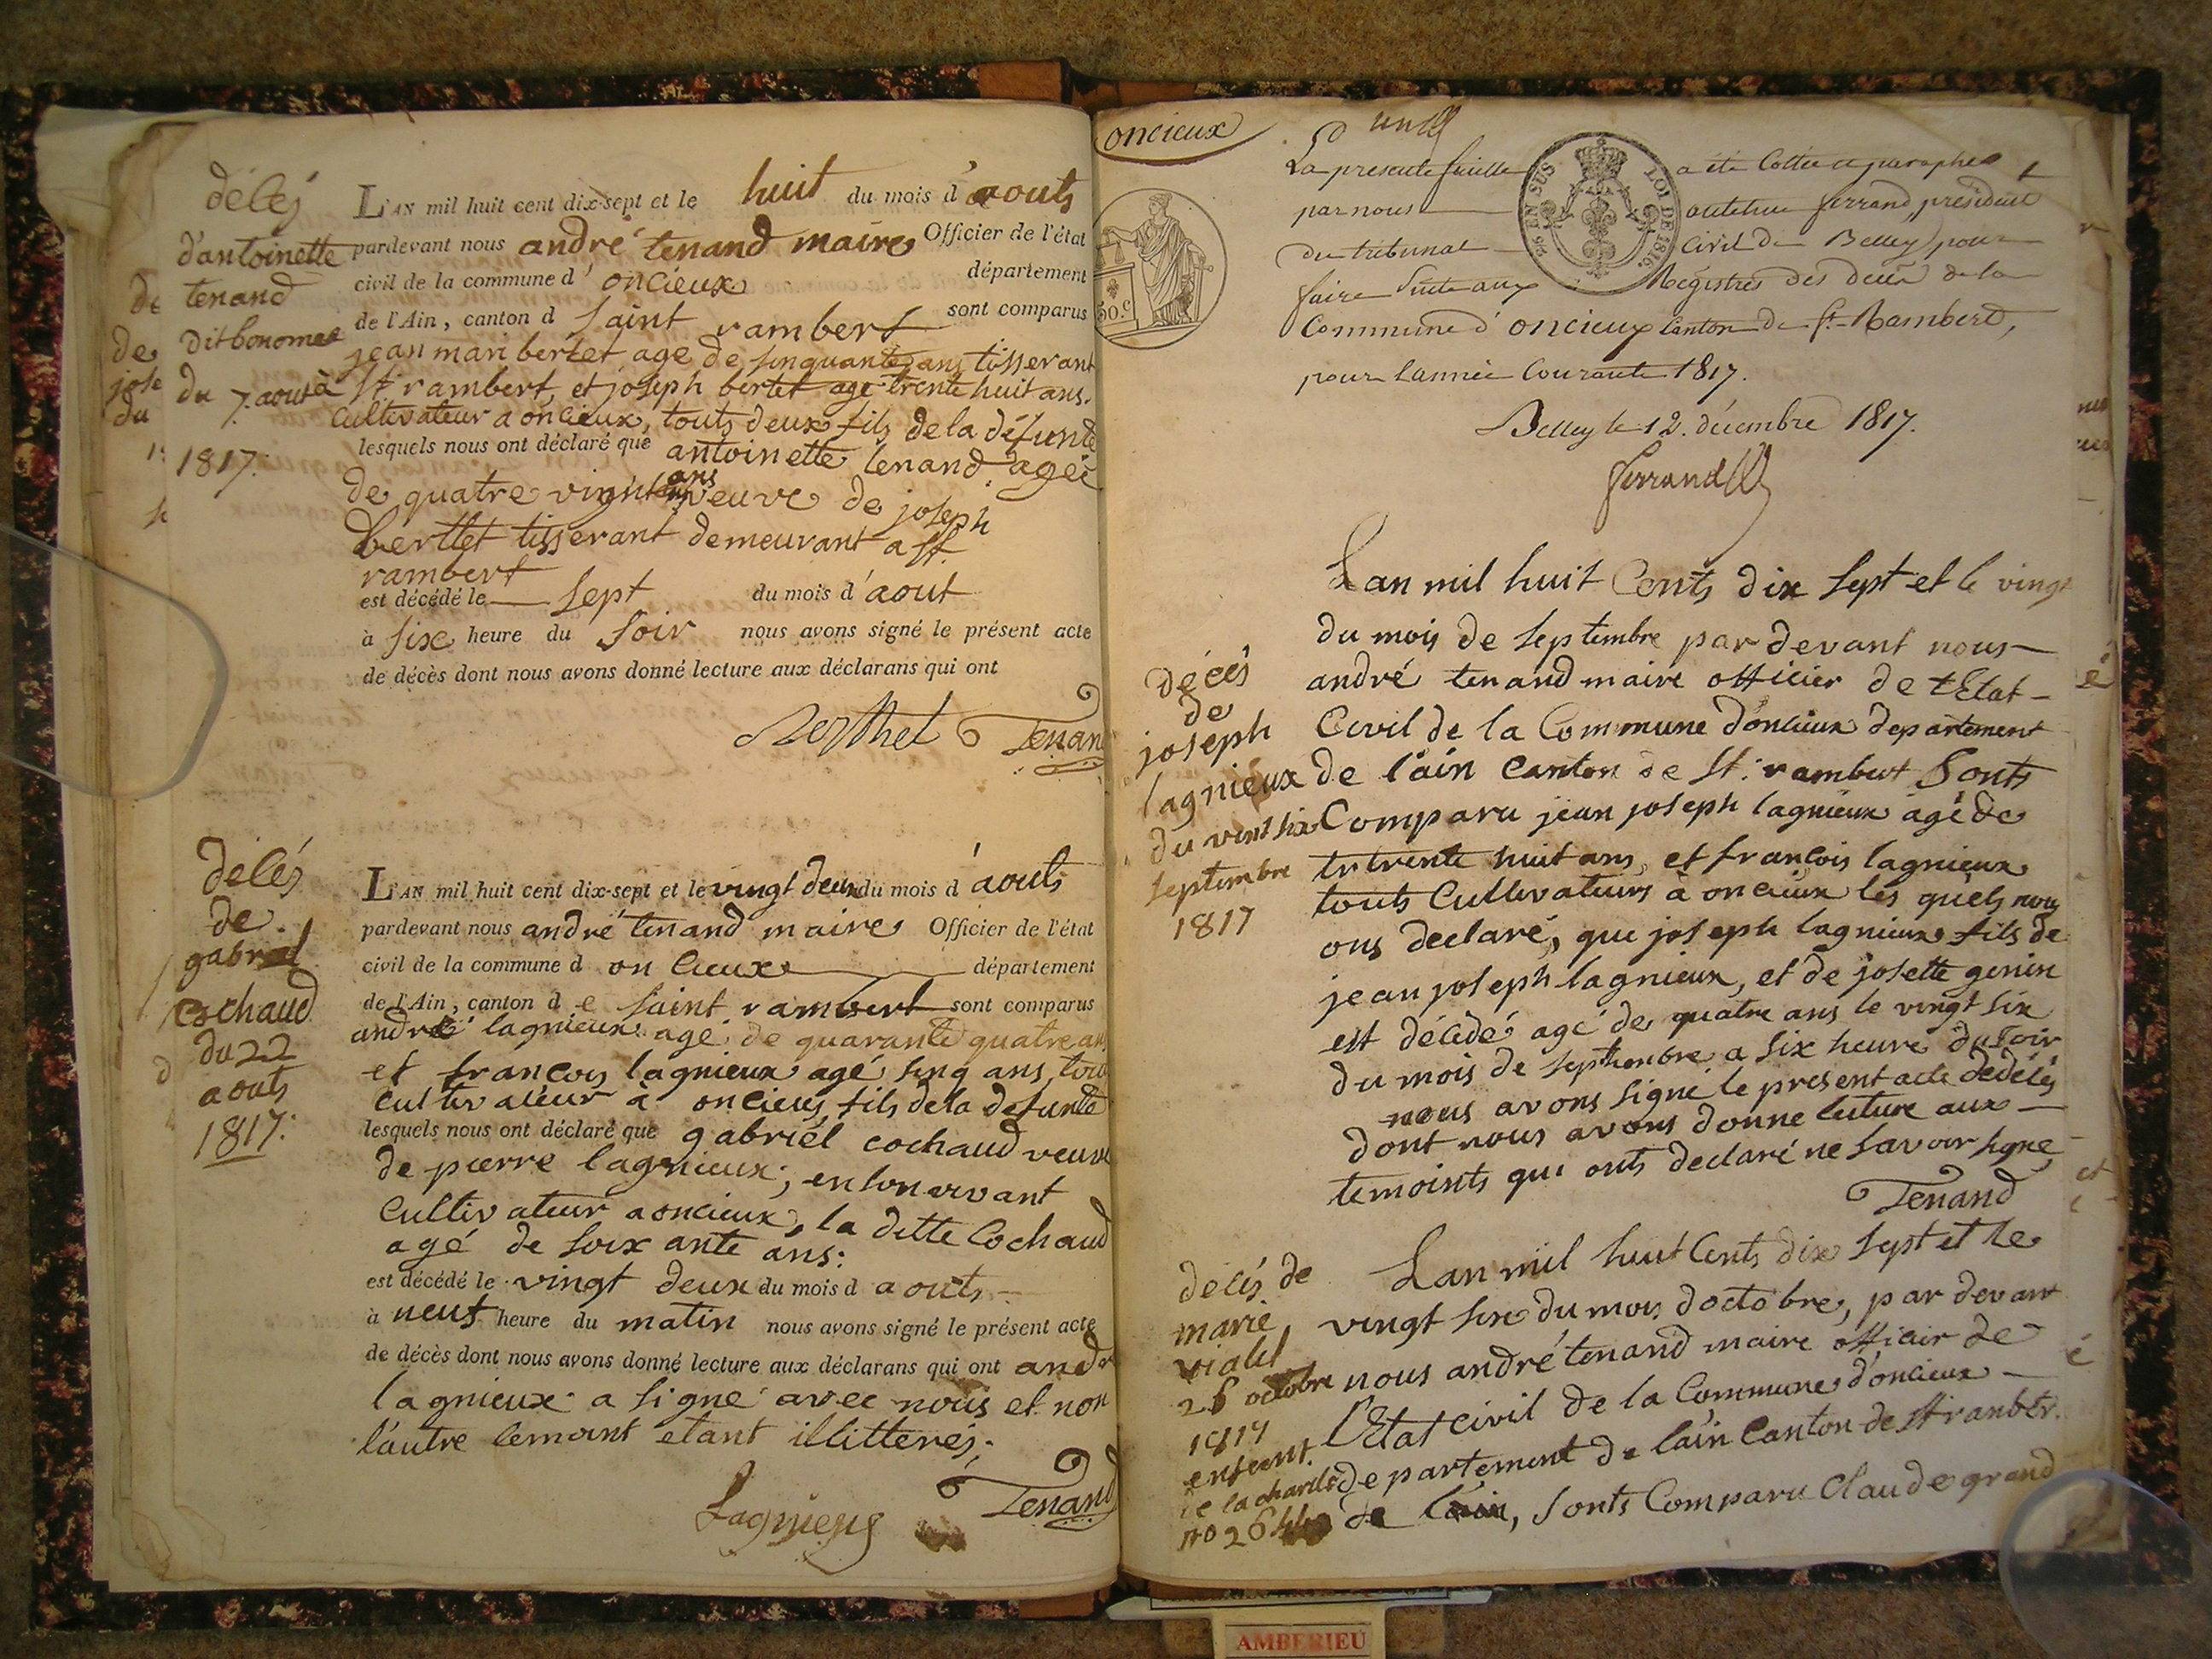 décés
d'antoinette
tenand
dit bonomee
du 7. aout à
1817.
L'AN mil huit cent dix-sept et le huit du mois d'aouts
pardevant nous andré tenand maire Officier de l'état
civil de la commune d'oncieux département
de l'Ain, canton d saint rambert sont comparus
jean mari bertet age de sinquante ans tisserant
St. rambert, et joseph bertet age trente huit ans.
Cultivateur a oncieux, touts deux fils de la défunte
lesquels nous ont déclaré que antoinette tenand agée
de quatre vingt ans veuve de joseph
bertlet tisserant demeurant a st.
rambert
est décédé le sept du mois d'aout
à six heure du soir nous avons signé le présent acte
de décès dont nous avons donné lecture aux déclarans qui ont
Berthet Tenand
décés
de
gabriel
cochaud
du 22
aouts
1817.
L'AN mil huit cent dix-sept et le vingt deux du mois d'aouts
pardevant nous andré tenand maire Officier de l'état
civil de la commune d oncieux département
de l'Ain, canton d e saint rambert sont comparus
andré lagnieux agé de quarante quatre ans
et francois lagnieux agé sinq ans, tous
cultivateur à oncieux, fils de la defunte
lesquels nous ont déclaré que gabriél cochaud veuve
de pierre lagnieux, en son vivant
cultivateur a oncieux, la ditte Cochaud
agé de soixante ans:
est décédé le vingt deux du mois d aouts
à neuf heure du matin nous avons signé le présent acte
de décès dont nous avons donné lecture aux déclarans qui ont andr
lagnieux a signé avec nous et non
l'autre temoint etant illitterés.
Lagnieux Tenand
oncieux
50.c
La presente feuille a été Cottée et paraphée
par nous ferrand, président
du tribunal Civil de Belley pour
faire Suite aux Régistres des decès de la
Commune d'oncieux Canton de St. Rambert,
pour l'année Courante 1817.
25 EN SUS LOI DE 1816
Belley le 12. décembre 1817.
ferrand
décés
de
joseph
lagnieux
du vint six
septembre
1817
Lan mil huit Cents dix sept et le vingt
du mois de septembre par devant nous
andré tenand maire officier de l'Etat
Civil de la Commune d'oncieux departement
de l'ain Canton de St. rambert Sonts
Comparu jean joseph lagnieux agé de
tr trente huit ans, et francois lagnieux
touts Cultivateurs à oncieux les quels nous
ons declaré, que joseph lagnieux fils de
jean joseph lagnieux, et de josette genin
est décédé agé de quatre ans le vingt six
du mois de septembre a six heure du soir
nous avons signé le present acte de décés
dont nous avons donne lecture aux
temoints qui onts declaré ne savoir signe
Tenand
décés de
marie
vialet
26 octobre
1817
enfent
de la charité
no 26
Lan mil huit Cents dix sept et le
vingt six du mois doctobre, par devant
nous andré tenand maire officir de
l'Etat civil de la Commune d'oncieux
departement de l'ain Canton de St rambtr.
de l'ain, sonts Comparu Claude grand
AMBERIEU